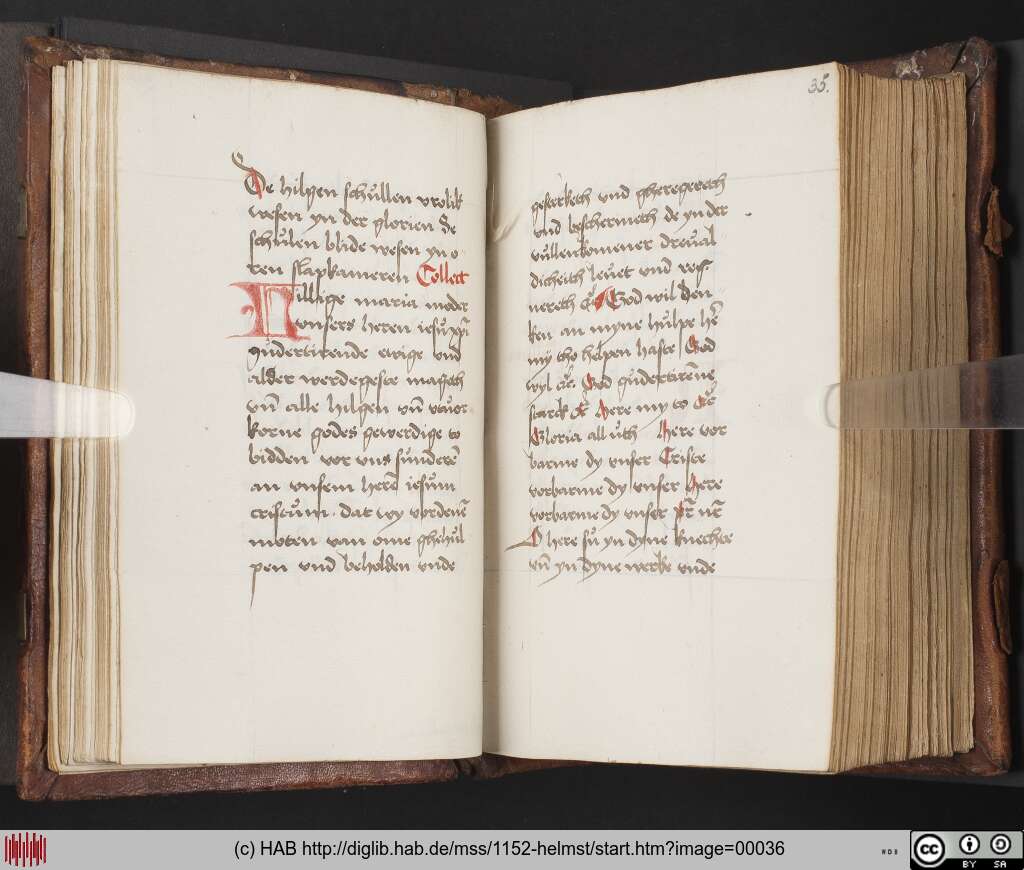 De hilgen schůllen vrolik
wesen yn der glorien Se
schůlen blide wesen yn o
ren slapkameren Collect
Hillige maria moder
vnsers heren iesu xpi
gůdertirende ewige vnd
alder werdegeste maget
vn̄ alle hilgen vn̄ vtuor
korne godes gewerdige to
bidden vor vns sunderē
an vnsem herē iesum
cristum. dat wy vordenē
moten van ome ghehůl
pen vnd beholden vnde
35.
gesterketh vnd gheregereth
vnd beschermeth de yn der
vůllenkomener dreual
dicheith leuet vnd reg
nereth Got wil den
ken an myne hůlpe hēr
my tho helpen haste God
wyl God gudertirēne
starck Here my to
Gloria all vth Here vor
barme dy vnser Criste
vorbarme dy vnser Here
vorbarme dy vnser pr̄ nr̄
O here su yn dyne knechte
vn̄ yn dyne werke vnde
(c) HAB http://diglib.hab.de/mss/1152-helmst/start.htm?image=00036
WDB
cc BY SA